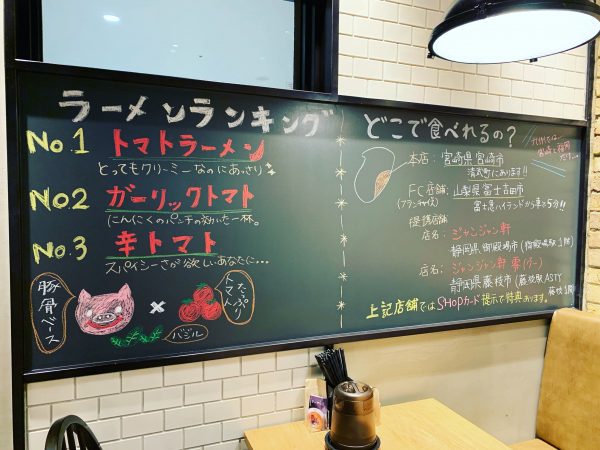 ラーメンランキング
No1 トマトラーメン
とってもクリーミーなのにあっさり
No2 ガーリックトマト
にんにくのパンチの効いた一杯。
No.3 辛トマト
スパイシーさが欲しいあなたに…
豚骨ベース
×
たっぷりトマト
バジル
どこで食べれるの?
九州では
宮崎と福岡
だけ
本店:宮崎県宮崎市
清武町にあります!!
FC店舗:山梨県富士吉田市
(フランチャイズ)
富士急ハイランドから車で5分!!
提携店舗
店名:ジャンジャン軒
静岡県御殿場市(御殿場駅1階)
店名:ジャンジャン軒 零(ゼロ)
静岡県藤枝市(藤枝駅ASTY
藤枝1階)
上記店舗ではSHOPカード提示で特典あります。